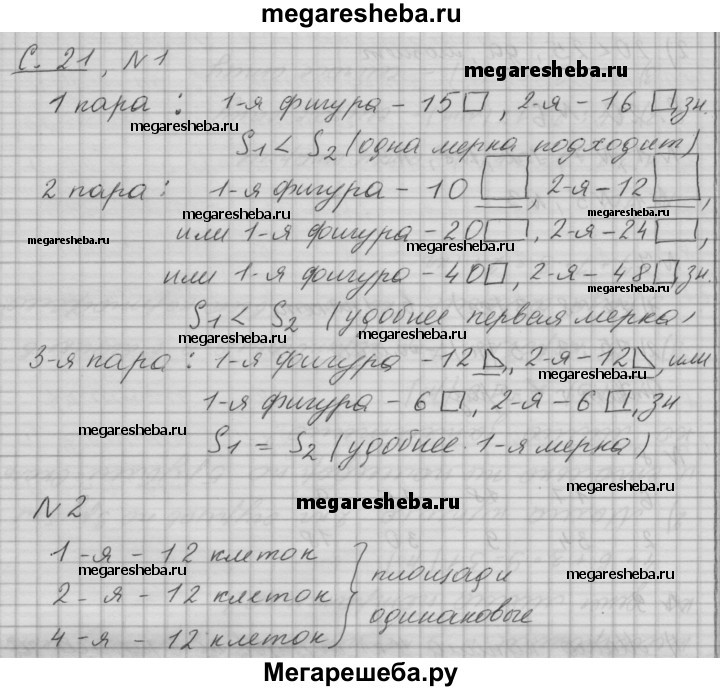 megaresheba.ru
С. 21, N1
megaresheba.ru
1 пара : 1-я фигура – 15 □, 2-я – 16 □, зн.
megaresheba.ru megaresheba.ru
S1 < S2 (одна мерка подходит)
2 пара : 1-я фигура – 10 □, 2-я – 12 □,
megaresheba.ru megaresheba.ru
или 1-я фигура – 20 □, 2-я – 24 □,
megaresheba.ru megaresheba.ru
или 1-я фигура – 40 □, 2-я – 48 □, зн.
megaresheba.ru
S1 < S2 (удобнее первая мерка)
megaresheba.ru megaresheba.ru
3-я пара : 1-я фигура – 12, 2-я – 12, или
megaresheba.ru
1-я фигура – 6 □, 2-я – 6 □, зн
megaresheba.ru
S1 = S2 (удобнее 1-я мерка)
megaresheba.ru
N 2
megaresheba.ru
1-я – 12 клеток
megaresheba.ru площади megaresheba.ru
2-я – 12 клеток
одинаковые
4-я – 12 клеток
megaresheba.ru
Мегарешеба.ру